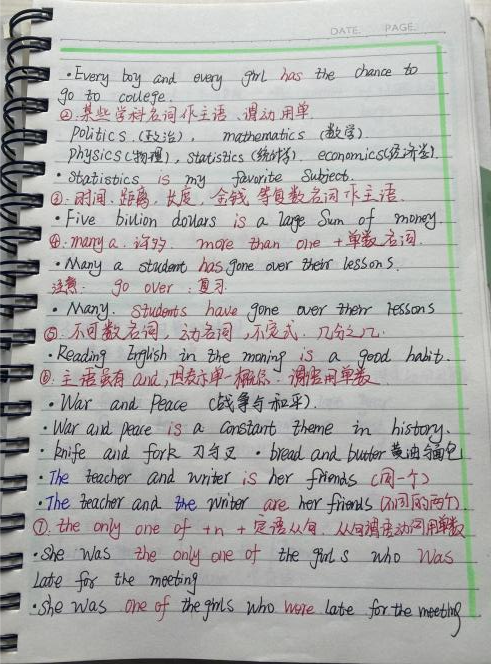 DATE. PAGE.
·Every boy and every girl has the chance to
go to college.
②.某些学科名词作主语、谓动用单.
politics (政治), mathematics (数学)
physics(物理), statistics (统计学). economics(经济学).
·Statistics is my favorite Subject.
③.时间、距离、长度、金钱等复数名词作主语.
·Five billion dollars is a large Sum of money.
④.many a.许多. more than one +单数名词.
·Many a student has gone over their lessons.
注意: go over:复习.
·Many. students have gone over their lessons
⑤.不可数名词,动名词,不定式.几分之几.
·Reading English in the morning is a good habit.
⑥.主语虽有and,但表示单一概念.谓语用单数
·War and Peace (战争与和平).
·War and peace is a constant theme in history.
·knife and fork 刀与叉 ·bread and butter 黄油与面包
·The teacher and writer is her friends (同一个)
·The teacher and the writer are her friends (不同的两个)
⑦.the only one of +n +定语从句.从句谓语动词用单数
·She was the only one of the girls who was
late for the meeting
·She was one of the girls who were late for the meeting